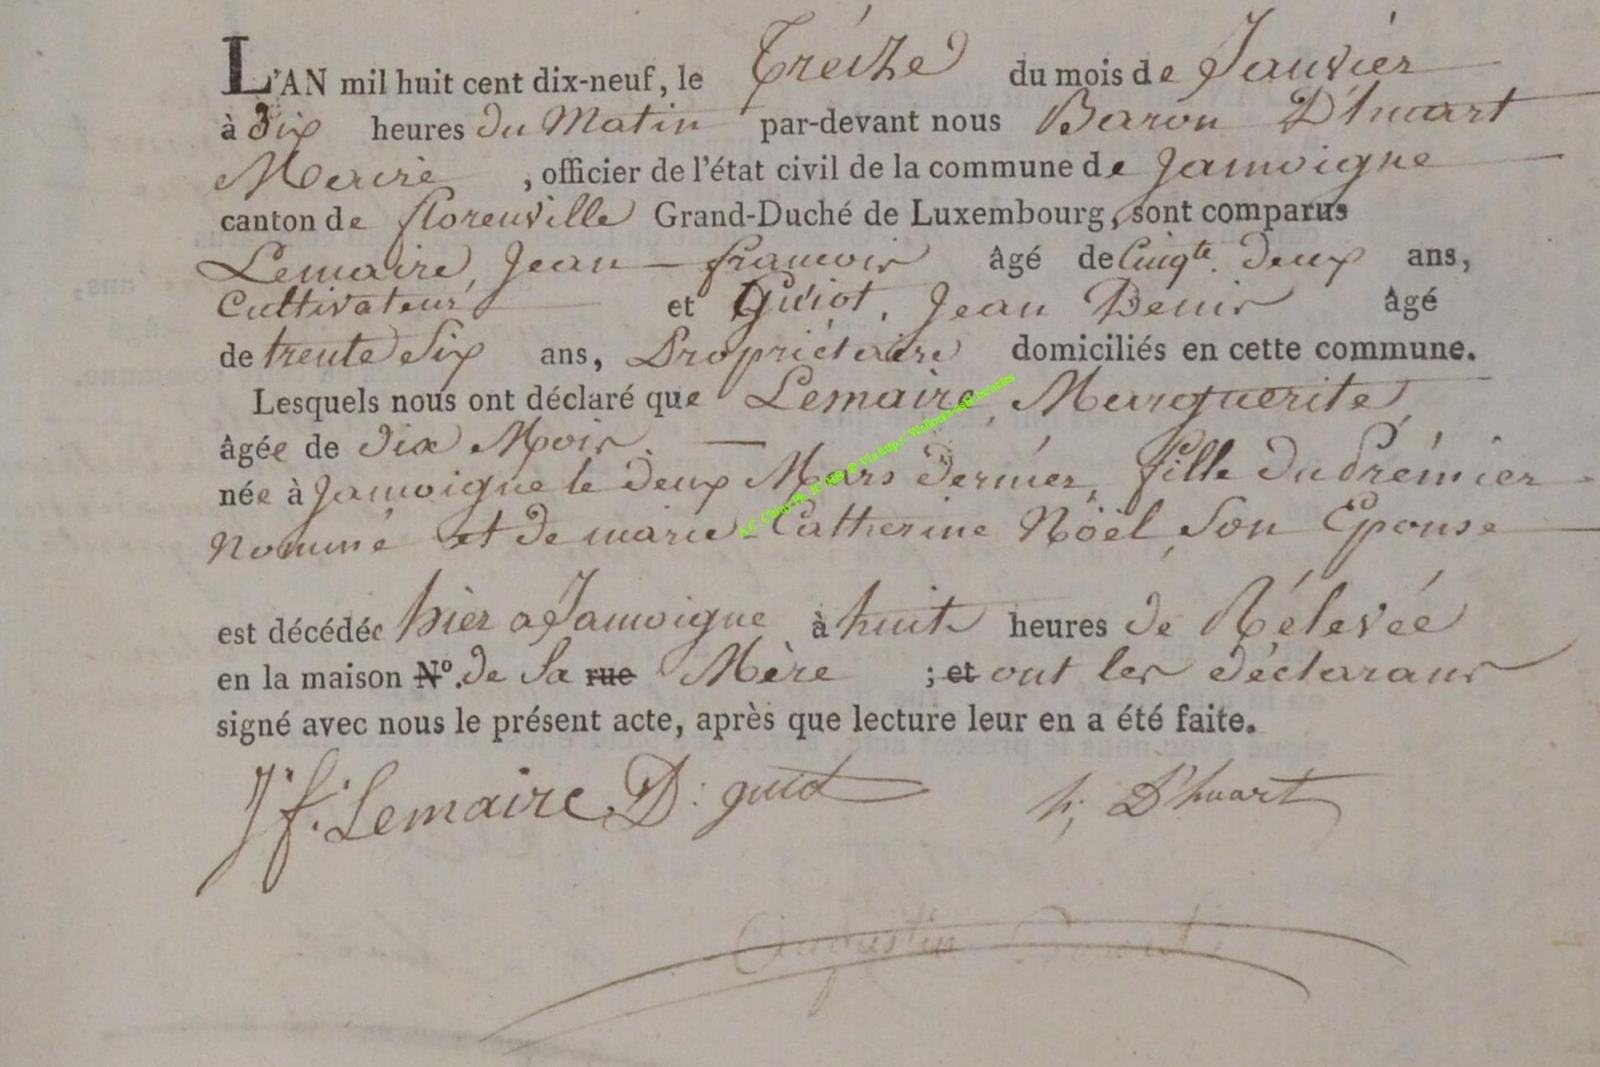 L'AN mil huit cent dix-neuf, le Tréize du mois de Janviér
à Dix heures du Matin par-devant nous Baron D'huart
Maire, officier de l'état civil de la commune de Jamoigne
canton de florenville Grand-Duché de Luxembourg, sont comparus
Lemaire, Jean francois âgé de Cinqte. deux ans,
Cultivateur, et Guiot, Jean Denis âgé
de trente Six ans, Propriétaire domiciliés en cette commune.
Lesquels nous ont déclaré que Lemaire, Marguerite,
âgée de dix Mois.
née à Jamoigne le deux Mars dernier, fille du Prémier
Nommé et de marie Catherine Nöel, Son Epouse
est décédée hier a Jamoigne à huit heures de Rélevée
en la maison N°. de Sa rue Mère ; et ont les déclarans
signé avec nous le présent acte, après que lecture leur en a été faite.
Jf. Lemaire D: guiot h; D'huart